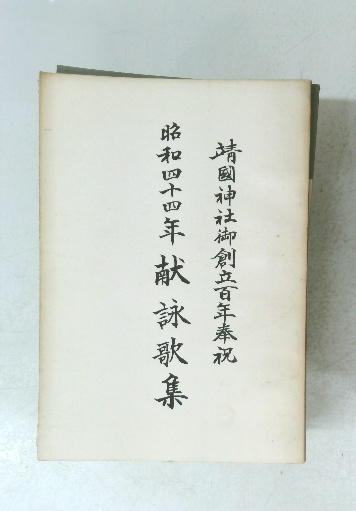 靖國神社御創立百年奉祝
昭和四十四年献詠歌集